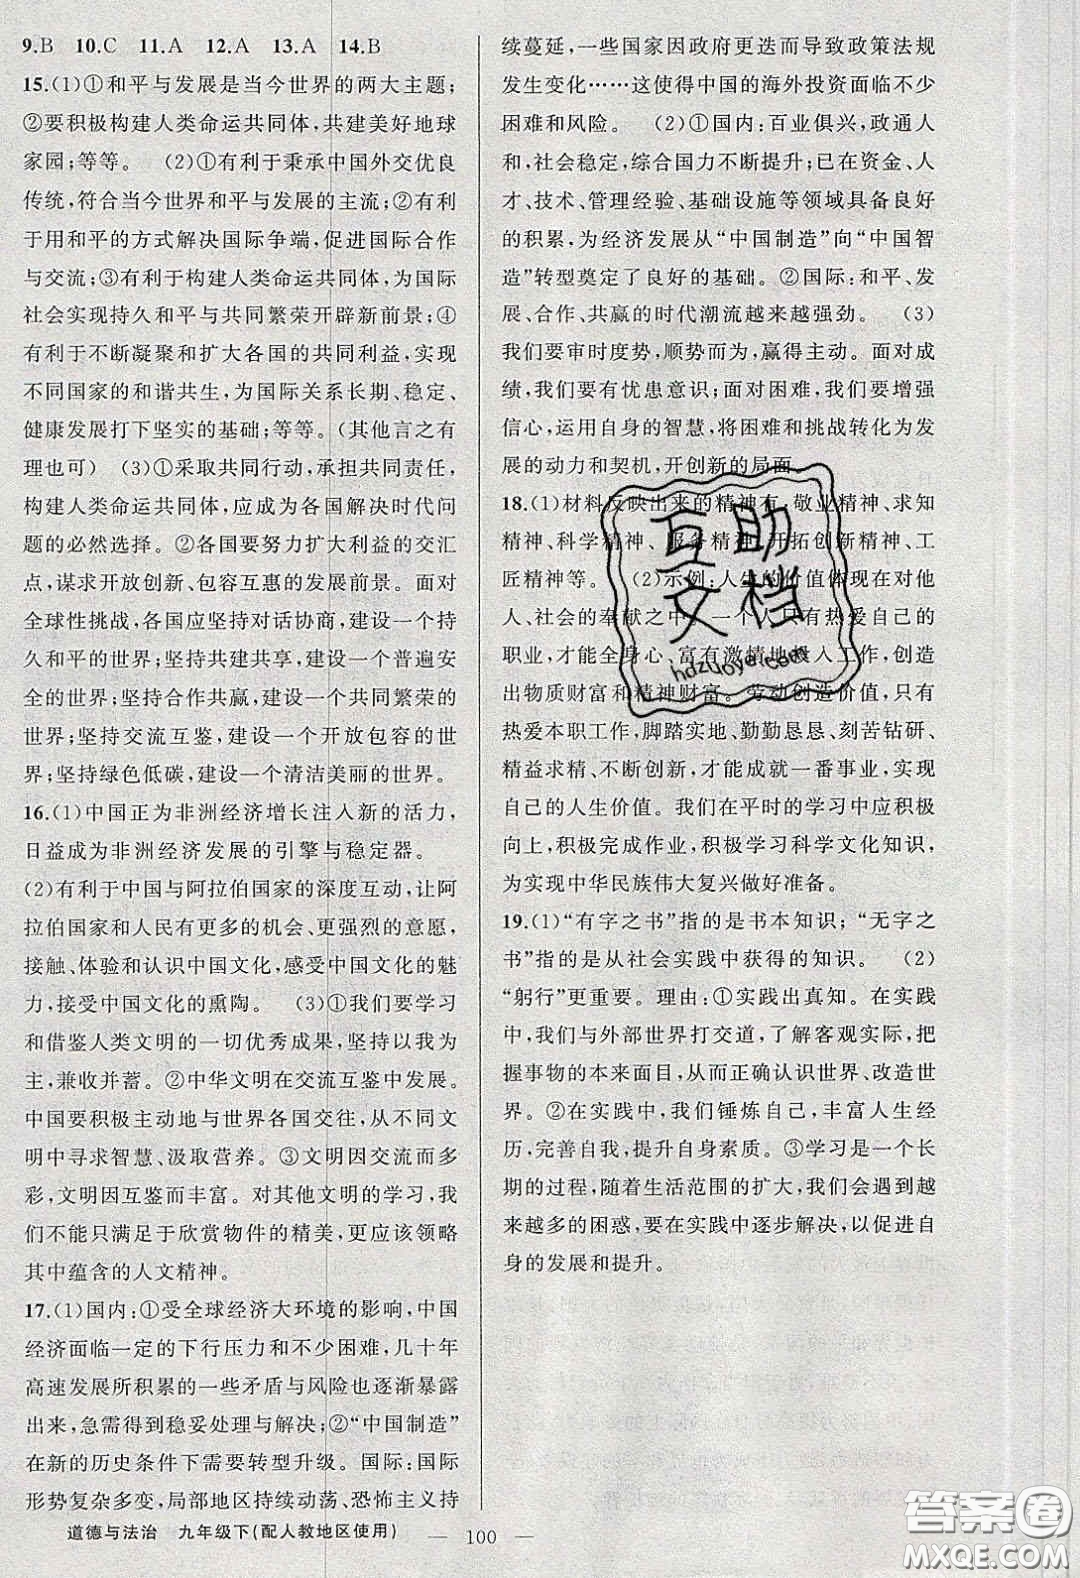 9.B 10.C 11.A 12.A 13.A 14.B
15.(1)①和平与发展是当今世界的两大主题;
②要积极构建人类命运共同体,共建美好地球
家园;等等。 (2)①有利于秉承中国外交优良
传统,符合当今世界和平与发展的主流;②有利
于用和平的方式解决国际争端,促进国际合作
与交流;③有利于构建人类命运共同体,为国际
社会实现持久和平与共同繁荣开辟新前景;④
有利于不断凝聚和扩大各国的共同利益,实现
不同国家的和谐共生,为国际关系长期、稳定、
健康发展打下坚实的基础;等等。(其他言之有
理也可) (3)①采取共同行动,承担共同责任,
构建人类命运共同体,应成为各国解决时代问
题的必然选择。②各国要努力扩大利益的交汇
点,谋求开放创新、包容互惠的发展前景。面对
全球性挑战,各国应坚持对话协商,建设一个持
久和平的世界;坚持共建共享,建设一个普遍安
全的世界;坚持合作共赢,建设一个共同繁荣的
世界;坚持交流互鉴,建设一个开放包容的世
界;坚持绿色低碳,建设一个清洁美丽的世界。
16.(1)中国正为非洲经济增长注入新的活力,
日益成为非洲经济发展的引擎与稳定器。
(2)有利于中国与阿拉伯国家的深度互动,让阿
拉伯国家和人民有更多的机会、更强烈的意愿,
接触、体验和认识中国文化,感受中国文化的魅
力,接受中国文化的熏陶。 (3)①我们要学习
和借鉴人类文明的一切优秀成果,坚持以我为
主,兼收并蓄。②中华文明在交流互鉴中发展。
中国要积极主动地与世界各国交往,从不同文
明中寻求智慧、汲取营养。③文明因交流而多
彩,文明因互鉴而丰富。对其他文明的学习,我
们不能只满足于欣赏物件的精美,更应该领略
其中蕴含的人文精神。
17.(1)国内:①受全球经济大环境的影响,中国
经济面临一定的下行压力和不少困难,几十年
高速发展所积累的一些矛盾与风险也逐渐暴露
出来,急需得到稳妥处理与解决;②“中国制造”
在新的历史条件下需要转型升级。国际:国际
形势复杂多变,局部地区持续动荡、恐怖主义持
续蔓延,一些国家因政府更迭而导致政策法规
发生变化……这使得中国的海外投资面临不少
困难和风险。 (2)①国内:百业俱兴,政通人
和,社会稳定,综合国力不断提升;已在资金、人
才、技术、管理经验、基础设施等领域具备良好
的积累,为经济发展从“中国制造”向“中国智
造”转型奠定了良好的基础。②国际:和平、发
展、合作、共赢的时代潮流越来越强劲。 (3)
我们要审时度势,顺势而为,赢得主动。面对成
绩,我们要有忧患意识;面对困难,我们要增强
信心,运用自身的智慧,将困难和挑战转化为发
展的动力和契机,开创新的局面。
18.(1)材料反映出来的精神有:敬业精神、求知
精神、科学精神、服务精神、开拓创新精神、工
匠精神等。 (2)示例:人生的价值体现在对他
人、社会的奉献之中。一个人只有热爱自己的
职业,才能全身心、富有激情地投入工作,创造
出物质财富和精神财富。劳动创造价值,只有
热爱本职工作,脚踏实地、勤勤恳恳、刻苦钻研、
精益求精、不断创新,才能成就一番事业,实现
自己的人生价值。我们在平时的学习中应积极
向上,积极完成作业,积极学习科学文化知识,
为实现中华民族伟大复兴做好准备。
19.(1)“有字之书”指的是书本知识;“无字之
书”指的是从社会实践中获得的知识。 (2)
“躬行”更重要。理由:①实践出真知。在实践
中,我们与外部世界打交道,了解客观实际,把
握事物的本来面目,从而正确认识世界、改造世
界。②在实践中,我们锤炼自己,丰富人生经
历,完善自我,提升自身素质。③学习是一个长
期的过程,随着生活范围的扩大,我们会遇到越
来越多的困惑,要在实践中逐步解决,以促进自
身的发展和提升。
互助
文档
hdzuoye.com
道德与法治 九年级下(配人教地区使用) — 100 —
答案圈
MXQE.COM